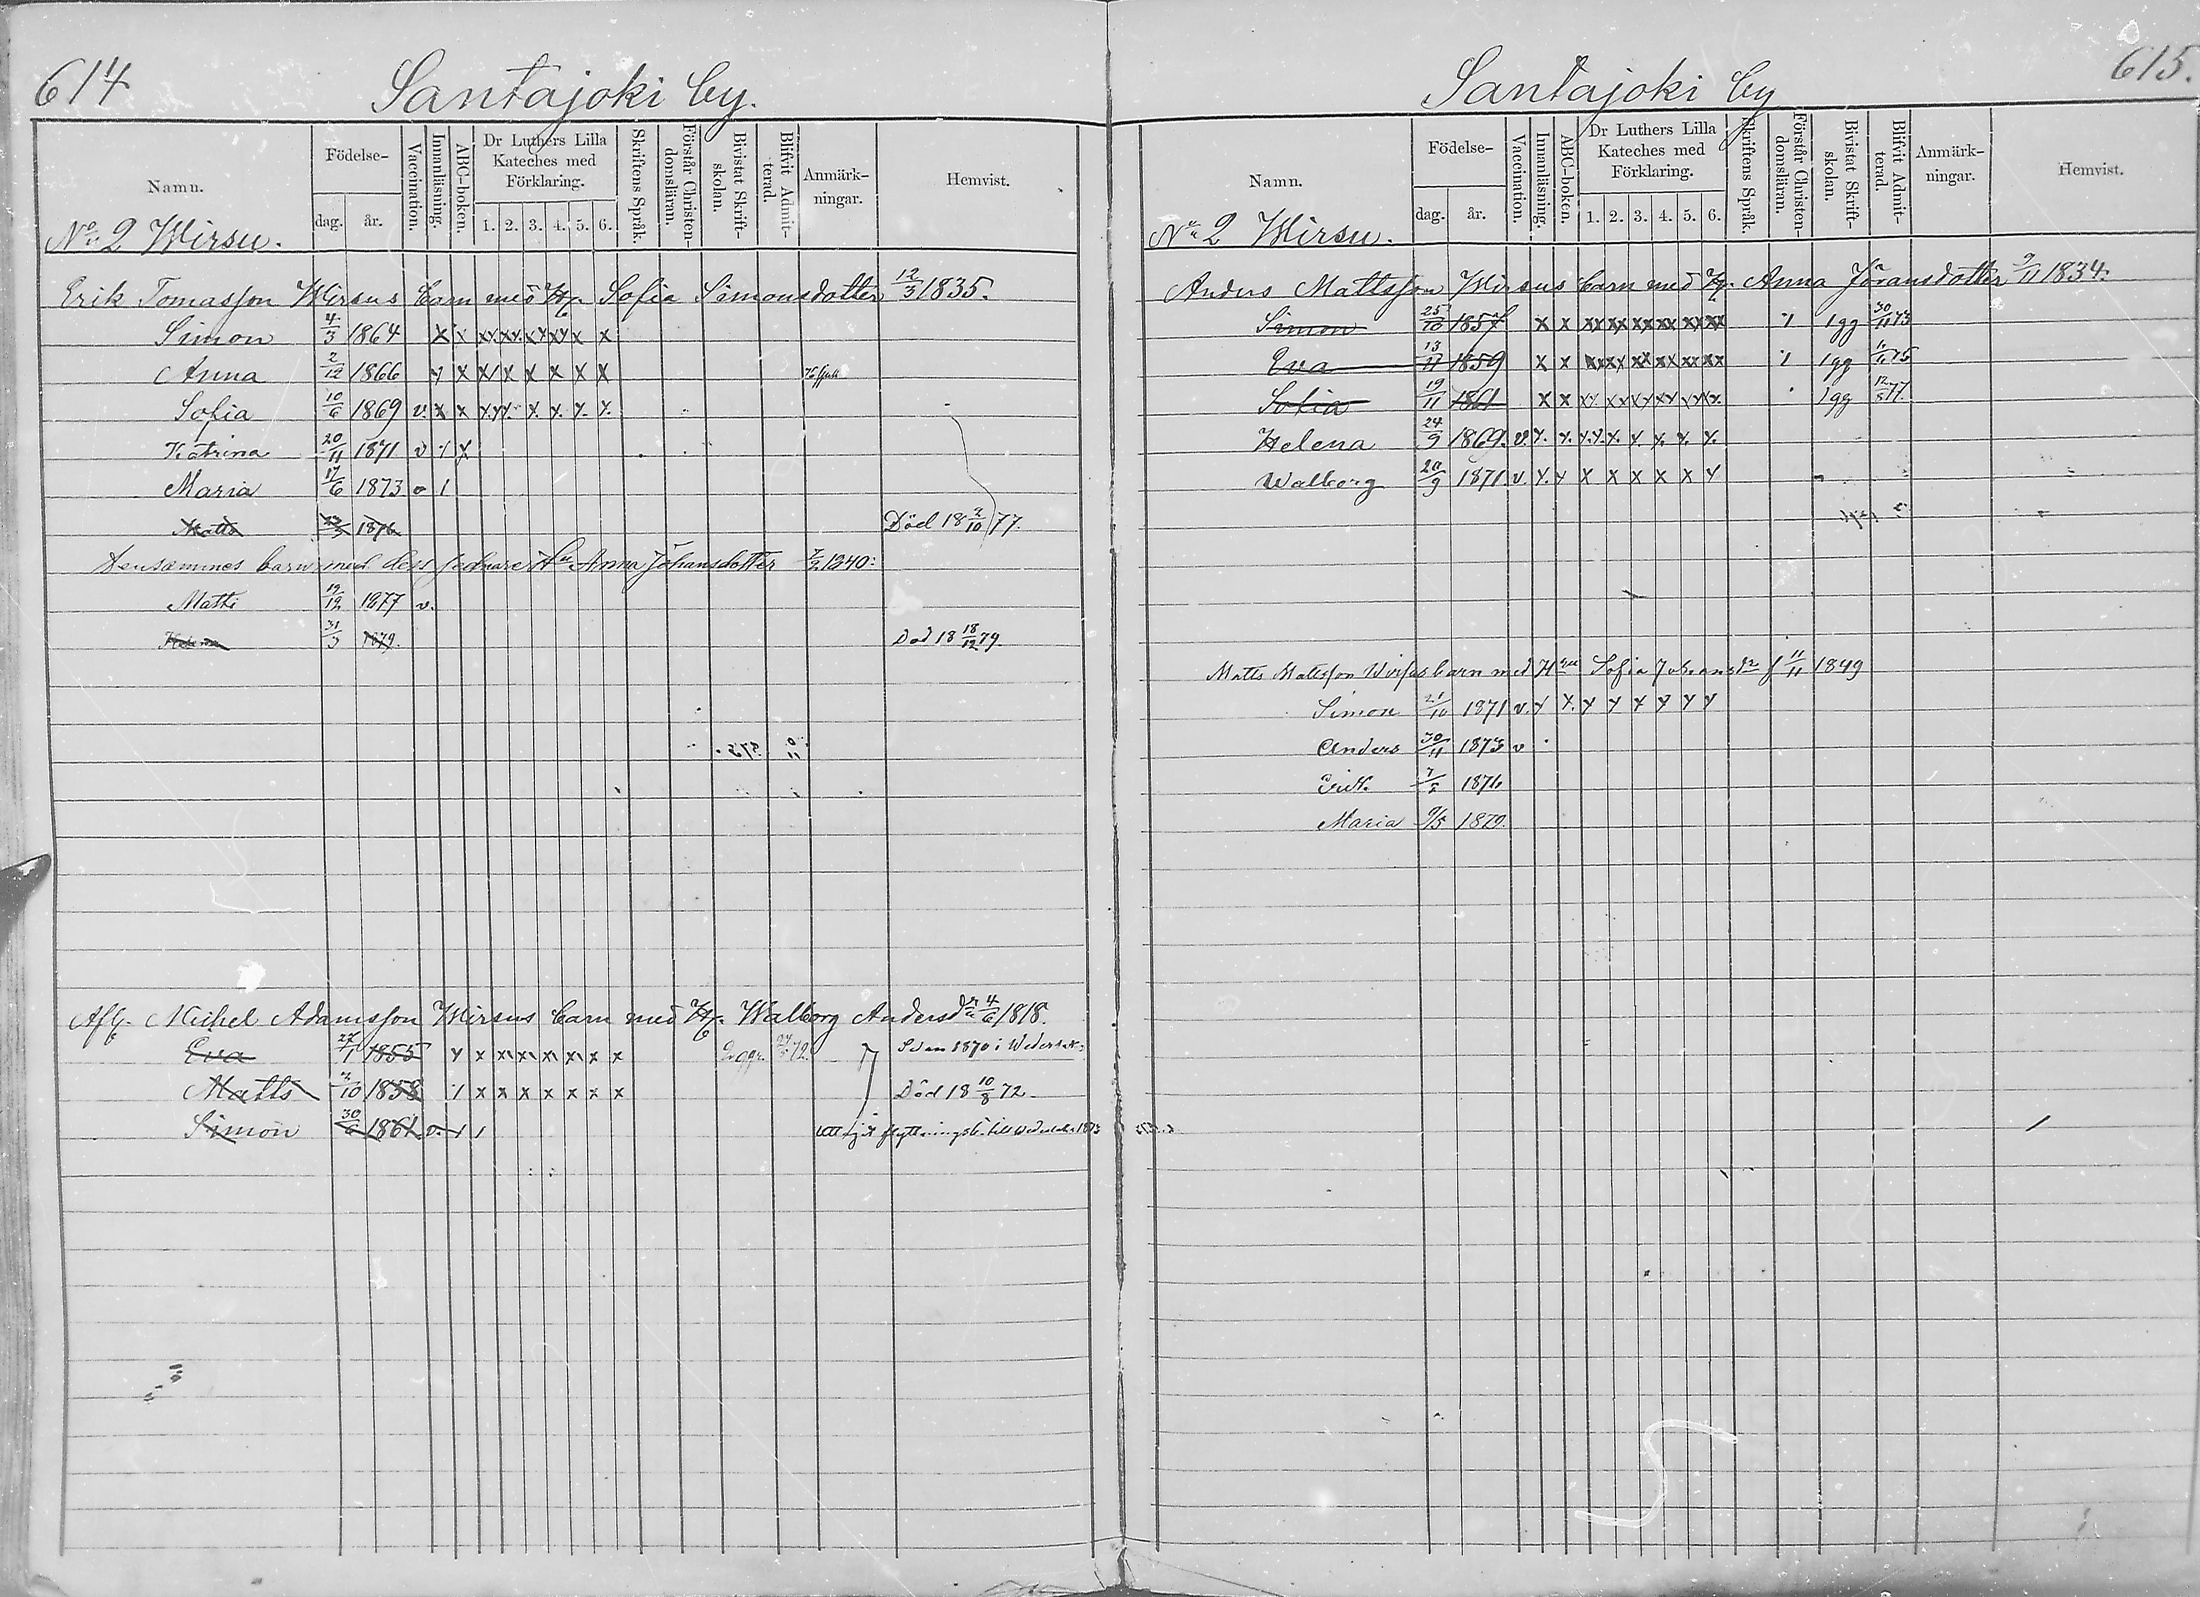 614
Santajoki by.
Namn.
Födelse-
dag.
år.
Vaccination.
Innanläsning.
ABC-boken.
Dr Luthers Lilla
Kateches med
Förklaring.
1. 2. 3. 4. 5. 6.
Skriftens Språk.
Förstår Christen-
domsläran.
Bivistat Skrift-
skolan.
Blifvit Admit-
terad.
Anmärk-
ningar.
Hemvist.
No 2 Wirsu.
Erik Tomasson Wirsus barn med Hu Sofia Simonsdotter 12/3 1835.
Simon 4/3 1864 x x xx xx xx xx x x
Anna 2/12 1866 y x x/ x x x x x
Sofia 10/6 1869 v. x x x.y x. x. x. y. y.
Katrina 20/11 1871 v y x
Maria 17/6 1873 v /
Matts 1876 Död 18 2/10 77.
Densammes barn med dess sednare Hu Anna Johansdotter 7/2 1840:
Matts 19/12 1877 v.
31/3 1879. Död 18 18/12 79.
Afl. Michel Adamsson Wirsus barn med Hu. Walborg Andersdr 4/6 1818.
Eva 27/1 1855 y x x x x x x x 72. Sedan 1870 i
Matts 2/10 1858 / x x x x x x x Död 18 10/8 72
Simon 30/6 1861 v. / / flyttningsb. till 1873
615.
Santajoki by
Namn.
Födelse-
dag.
år.
Vaccination.
Innanläsning.
ABC-boken.
Dr Luthers Lilla
Kateches med
Förklaring.
1. 2. 3. 4. 5. 6.
Skriftens Språk.
Förstår Christen-
domsläran.
Bivistat Skrift-
skolan.
Blifvit Admit-
terad.
Anmärk-
ningar.
Hemvist.
No 2 Wirsu.
Anders Mattsson Wirsus barn med Hu. Anna Jöransdotter 9/11 1834.
Simon 25/10 1857 x x xx xx xx xx xx xx / 1 gg 30/11 73
Eva 13/11 1859 x x xx xx xx xx xx xx / 1 gg 75
Sofia 19/11 1861 x x xx xx xx xx xx xx 1 gg 77.
Helena 24/9 1869. v. y. y. y.y. y. y. y. y. y.
Walborg 20/9 1871 v. y. y x x x x x y
Matts Mattsson Wirsus barn med Hu Sofia Johansdr f 11/11 1849
Simon 21/10 1871 v. y y. y y y y y y
Anders 30/11 1873 v
Erik 7/2 1876
Maria 9/5 1879.